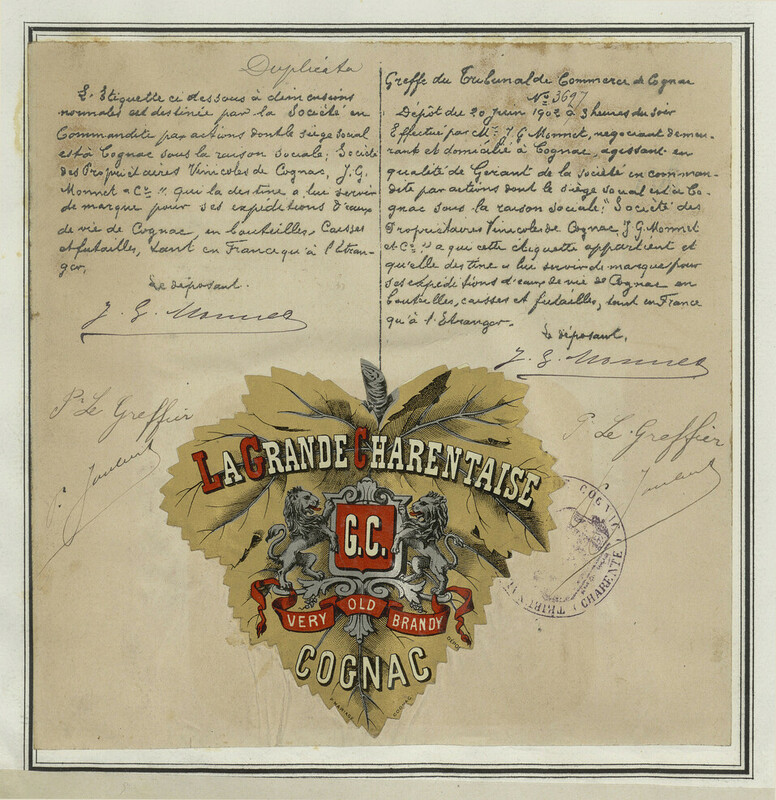 Duplicata
L'Etiquette ci dessous à dimensions
normales est destinée par la Société en
Commandite par actions dont le siège social
est à Cognac sous la raison sociale; Société
des Propriétaires Vinicoles de Cognac, J.G.
Monnet & Cie ,, qui la destine à lui servir
de marque pour ses expéditions d'eaux
de vie de Cognac, en bouteilles, Caisses
et futailles, tant en France qu'à l'étran-
ger.
Le déposant.
J. G. Monnet
P. Le Greffier
Greffe du Tribunal de Commerce de Cognac
No 3697
Dépôt du 20 Juin 1902 à 3 heures du soir
Effectué par Mr J G Monnet, négociant demeu-
rant et domicilié à Cognac, agissant en
qualité de Gérant de la société en comman-
dite par actions dont le siège social est à Co-
gnac sous la raison sociale; "Société des
Propriétaires Vinicoles de Cognac, J.G. Monnet
et Cie ,, à qui cette étiquette appartient et
qu'elle destine à lui servir de marque pour
ses expéditions d'eaux de vie de Cognac en
bouteilles, caisses et futailles, tant en France
qu'à l'Etranger.
Le déposant,
J. G. Monnet
P. Le Greffier
LA GRANDE CHARENTAISE
G.C.
VERY OLD BRANDY
DÉPOSÉ
COGNAC
COGNAC
COGNAC
CHARENTE